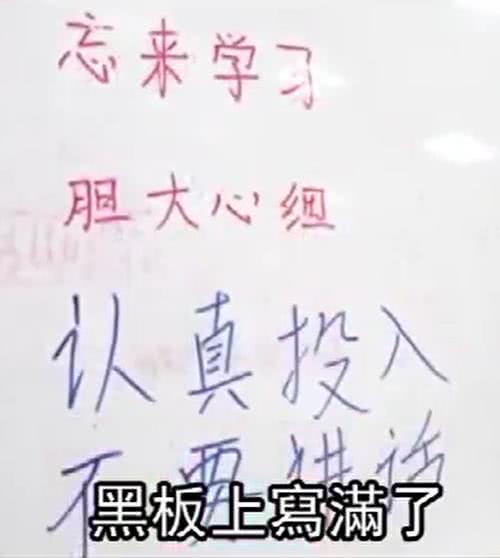 忘来学习
胆大心组
认真投入
不要讲话
黑板上寫滿了